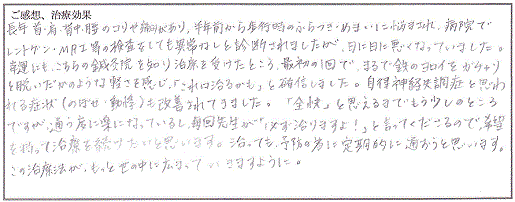 ご感想、治療効果
長年 首・肩・背中・腰のコリや痛みがあり、半年前から歩行時のふらつき・めまいに悩まされ、病院で
レントゲン・MRI等の検査をしても異常なしと診断されましたが、日に日に悪くなっていました。
幸運にも、こちらの鍼灸院を知り治療を受けたところ、最初の1回で、まるで鉄のヨロイをガチャリ
と脱いだかのような軽さを感じ、「これは治るかも」と確信しました。自律神経失調症と思わ
れる症状(のぼせ・動悸)も改善されてきました。「全快」と思えるまでもう少しのところ
ですが、通う度に楽になっているし、毎回先生が「必ず治りますよ!」と言ってくださるので、希望
を持って治療を続けたいと思います。治っても、予防の為に定期的に通おうと思います。
この治療法が、もっと世の中に広まっていきますように。